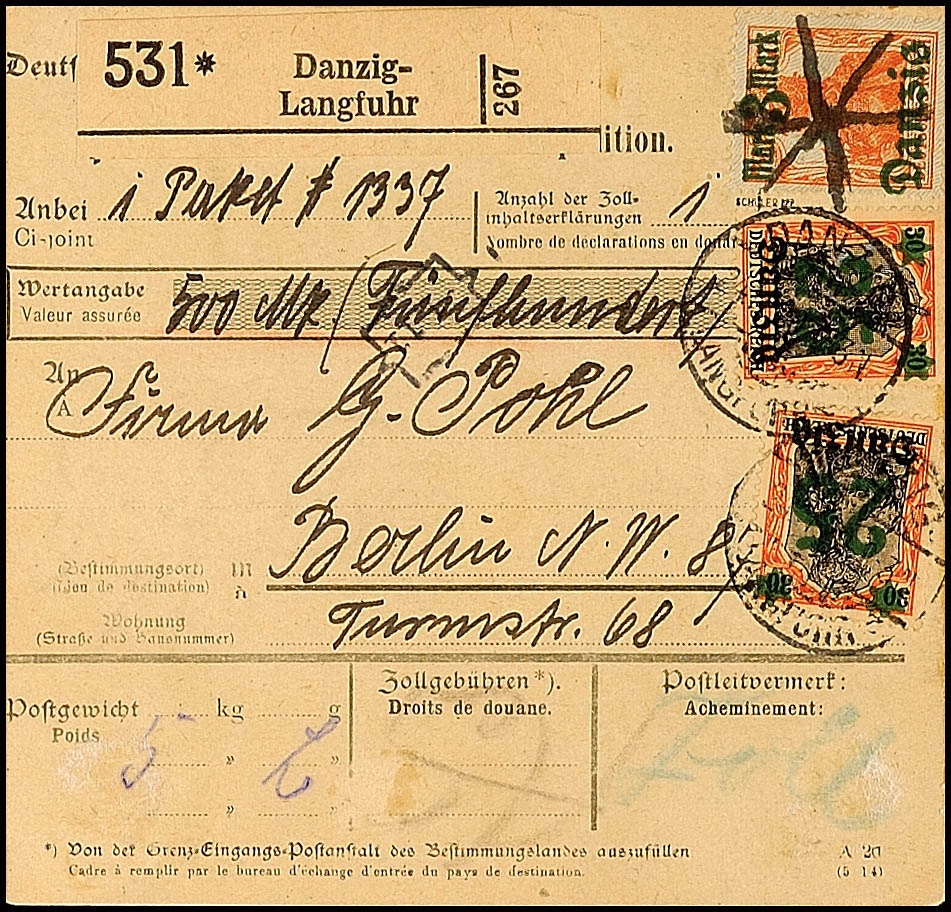 Deuts
531* Danzig-
Langfuhr 267
ition.
Mark 3 Mark
Danzig
Anbei 1 Paket # 1337
Ci-joint
Anzahl der Zoll-
inhaltserklärungen 1
Nombre de déclarations en douan
Wertangabe 500 Mk (Fünfhundert)
Valeur assurée
DEUTSCHES REICH
Danzig
30
30
An Firma G. Pohl
À
DEUTSCHES REICH
Danzig
25
30 30
Berlin N.W. 8
(Bestimmungsort) in
(Lieu de destination) à
Wohnung
(Straße und Hausnummer) Turmstr. 68
Postgewicht kg g
Poids
5 " "
" "
Zollgebühren*).
Droits de douane.
Postleitvermerk:
Acheminement:
*) Von der Grenz-Eingangs-Postanstalt des Bestimmungslandes auszufüllen
Cadre à remplir par le bureau d'échange d'entrée du pays de destination.
A 20
(5 14)